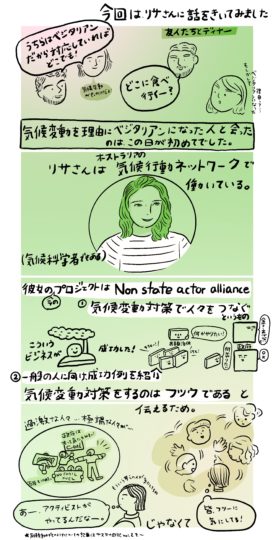 今回はリサさんに話をきいてみました
友人たちとディナー
うちらはベジタリアン
だから対応していれば
どこでも!
どこに食べ
行くー?
気候変動を理由にベジタリアンになった人と会った
のはこの日が初めてでした。
オーストラリアの
リサさんは 気候行動ネットワークで
働いている。
(気候科学者でもある)
彼女のプロジェクトは Non state actor alliance
その
① 気候変動対策で人々をつなぐ
というもの
こういう
ビジネスが
成功した!
何がやりたい!
政府
② 一般の人に向け成功例を紹介
気候変動対策をするのはフツウである と
伝えるため。
過激な人々…極端な人々が…
あー…アクティビストが
やってるんだなー。
じゃなくて
皆フツーに
気にしてる!